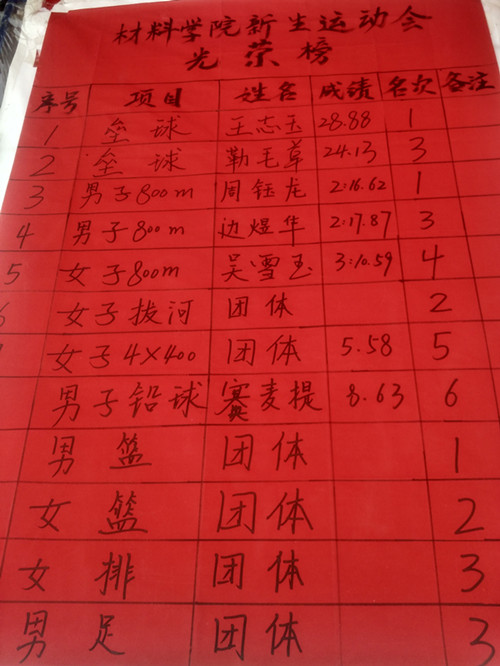 材料学院新生运动会
光荣榜
序号 项目 姓名 成绩 名次 备注
1 垒球 王志玉 28.88 1
2 垒球 勒毛草 24.13 3
3 男子800m 周钰龙 2:16.62 1
4 男子800m 边煜华 2:17.87 3
5 女子800m 吴雪玉 3:10.59 4
女子拔河 团体 2
女子4×400 团体 5.58 5
男子铅球 麦提 8.63 6
男篮 团体 1
女篮 团体 2
女排 团体 3
男足 团体 3